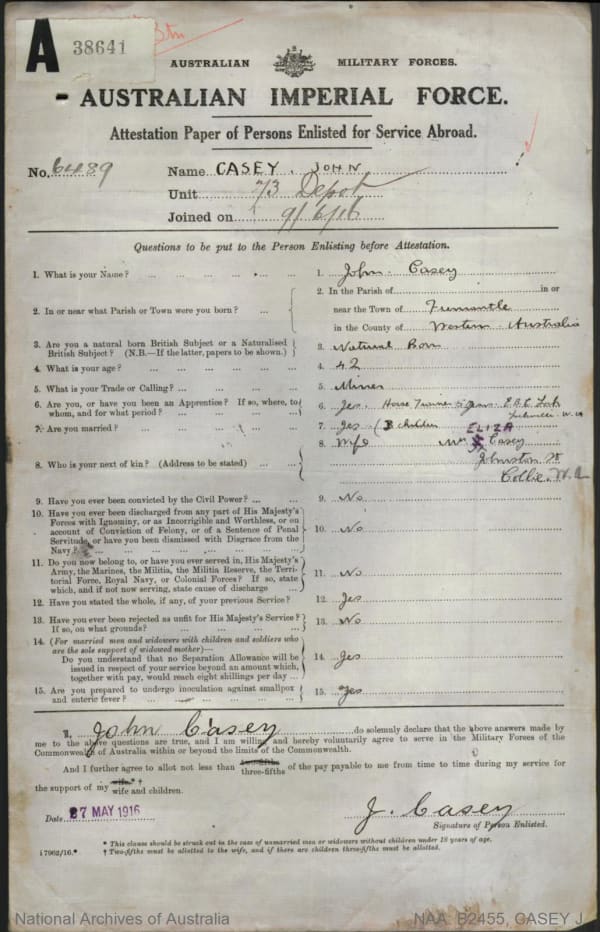 A
38641
AUSTRALIAN MILITARY FORCES.
AUSTRALIAN IMPERIAL FORCE.
Attestation Paper of Persons Enlisted for Service Abroad.
No. 6489 Name CASEY, JOHN
Unit 73 Depot
Joined on 9/6/16
Questions to be put to the Person Enlisting before Attestation.
1. What is your Name? ... ... ... ... ... 1. John Casey
2. In or near what Parish or Town were you born? ... 2. In the Parish of in or
near the Town of Fremantle
in the County of Western Australia
3. Are you a natural born British Subject or a Naturalised
British Subject? (N.B.—If the latter, papers to be shown.) 3. Natural Born
4. What is your age? ... ... ... ... 4. 42
5. What is your Trade or Calling? ... ... ... 5. Miner
6. Are you, or have you been an Apprentice? If so, where, to
whom, and for what period? ... ... ... ... 6. Yes Horse Trainer
7. Are you married? ... ... ... ... 7. Yes (3 children
8. Who is your next of kin? (Address to be stated) ... ... 8. Wife Mrs ELIZA Casey
Johnston St
Collie. W.A
9. Have you ever been convicted by the Civil Power? ... ... 9. No
10. Have you ever been discharged from any part of His Majesty's
Forces with Ignominy, or as Incorrigible and Worthless, or on
account of Conviction of Felony, or of a Sentence of Penal
Servitude, or have you been dismissed with Disgrace from the
Navy? ... ... ... ... ... 10. No
11. Do you now belong to, or have you ever served in, His Majesty's
Army, the Marines, the Militia, the Militia Reserve, the Terri-
torial Force, Royal Navy, or Colonial Forces? If so, state
which, and if not now serving, state cause of discharge ... 11. No
12. Have you stated the whole, if any, of your previous Service? 12. Yes
13. Have you ever been rejected as unfit for His Majesty's Service?
If so, on what grounds? ... ... ... ... 13. No
14. (For married men and widowers with children and soldiers who
are the sole support of widowed mother)—
Do you understand that no Separation Allowance will be
issued in respect of your service beyond an amount which,
together with pay, would reach eight shillings per day ... 14. Yes
15. Are you prepared to undergo inoculation against smallpox
and enteric fever? ... ... ... ... 15. Yes
I, John Casey do solemnly declare that the above answers made by
me to the above questions are true, and I am willing and hereby voluntarily agree to serve in the Military Forces of the
Commonwealth of Australia within or beyond the limits of the Commonwealth.
And I further agree to allot not less than two-fifths three-fifths of the pay payable to me from time to time during my service for
the support of my wife* † wife and children.
Date 27 MAY 1916 J. Casey
Signature of Person Enlisted.
* This clause should be struck out in the case of unmarried men or widowers without children under 18 years of age.
† Two-fifths must be allotted to the wife, and if there are children three-fifths must be allotted.
National Archives of Australia NAA: B2455, CASEY J